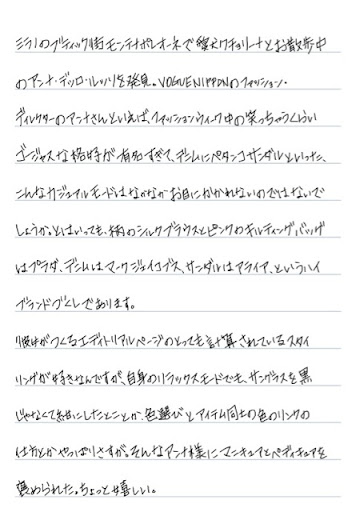 ミラノのブティック街モンテナポレオーネで愛犬クチョリーナとお散歩中
のアンナ・デッロ・ルッソを発見。VOGUE NIPPONのファッション・
ディレクターのアンナさんといえば、ファッションウィーク中の笑っちゃうくらい
ゴージャスな格好が有名すぎて、デニムにペタンコサンダルといった、
こんなカジュアルモードはなかなかお目にかかれないのではないで
しょうか。とはいっても、柄のシルクブラウスとピンクのキルティングバッグ
はプラダ、デニムはマークジェイコブス、サンダルはアライア、というハイ
ブランドづくしであります。
彼女がつくるエディトリアルページのとっても計算されているスタイ
リングが好きなんですが、自身のリラックスモードでも、サングラスを黒
じゃなくて紺にしたとことか、色選びとアイテム同士の色のリンクの
仕方とかやっぱりさすが。そんなアンナ様にマニキュアとペディキュアを
褒められた。ちょっと嬉しい。